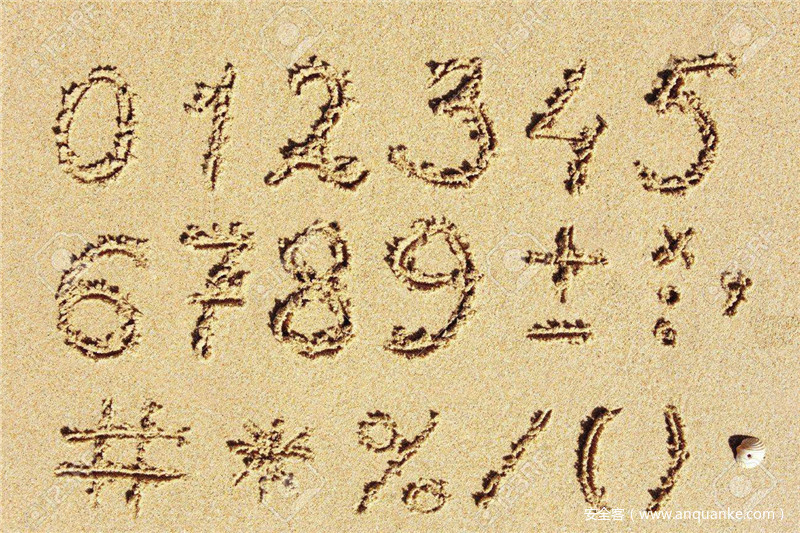 0 1 2 3 4 5
6 7 8 9 ± × : ,
# * % / ( )
安全客 ( www.anquanke.com )